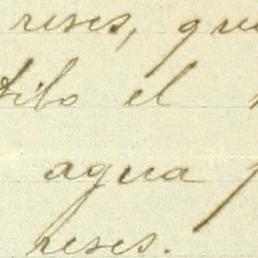 reses, que
el
agua
reses.